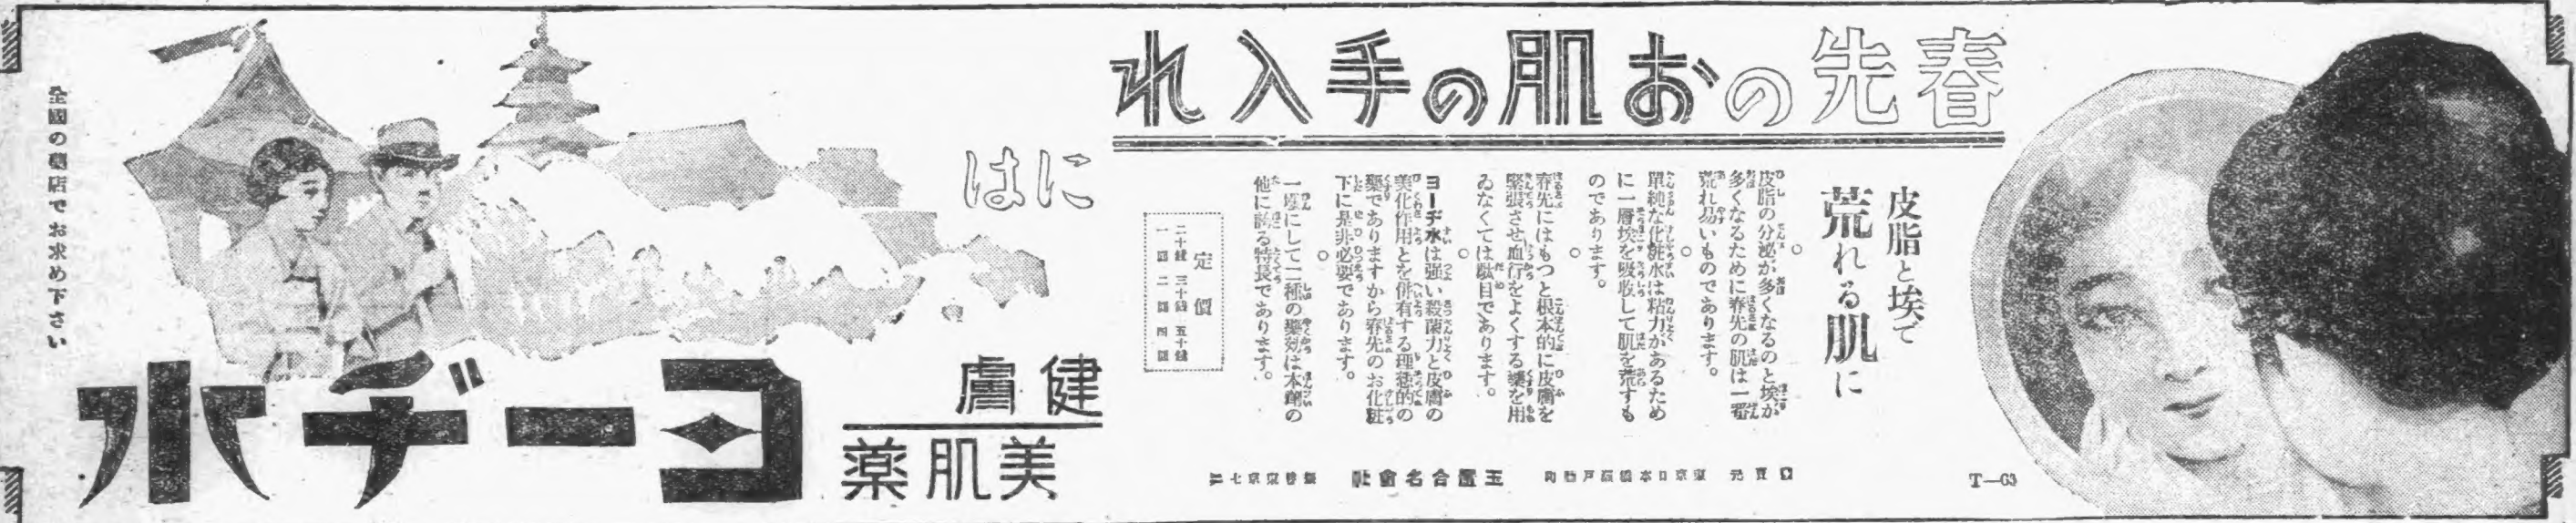 春先のお肌の手入れ
には
皮脂と埃で
荒れる肌に
皮脂の分泌が多くなるのと埃が
多くなるために春先の肌は一番
荒れ易いものであります。
単純な化粧水は粘力があるため
に一層埃を吸收して肌を荒すも
のであります。
春先にはもつと根本的に皮膚を
緊張させ血行をよくする藥を用
ゐなくては駄目であります。
ヨーヂ水は强い殺菌力と皮膚の
美化作用とを併有する理想的の
藥でありますから春先のお化粧
下に是非必要であります。
一壜にして二種の藥効は本劑の
他に誇る特長であります。
定價
二十錢 三十錢 五十錢
一圓 二圓 四圓
發賣元
玉置合名會社
T—63
健膚
美肌薬
ヨーヂ水
全國の藥店でお求め下さい